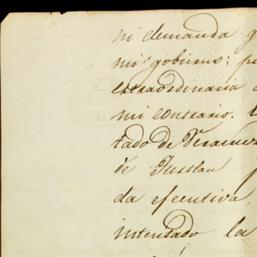 ni demanda
mi gobierno;
extraordinaria
mi contrario.
tado de Veracruz
de Tustlan
da efecutiva,
intentado la